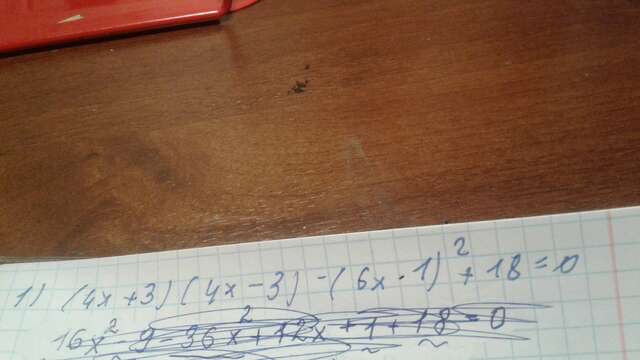 1) (4x+3)(4x-3)-(6x-1)²+18=0
16x²-9-36x²+12x+1+18=0